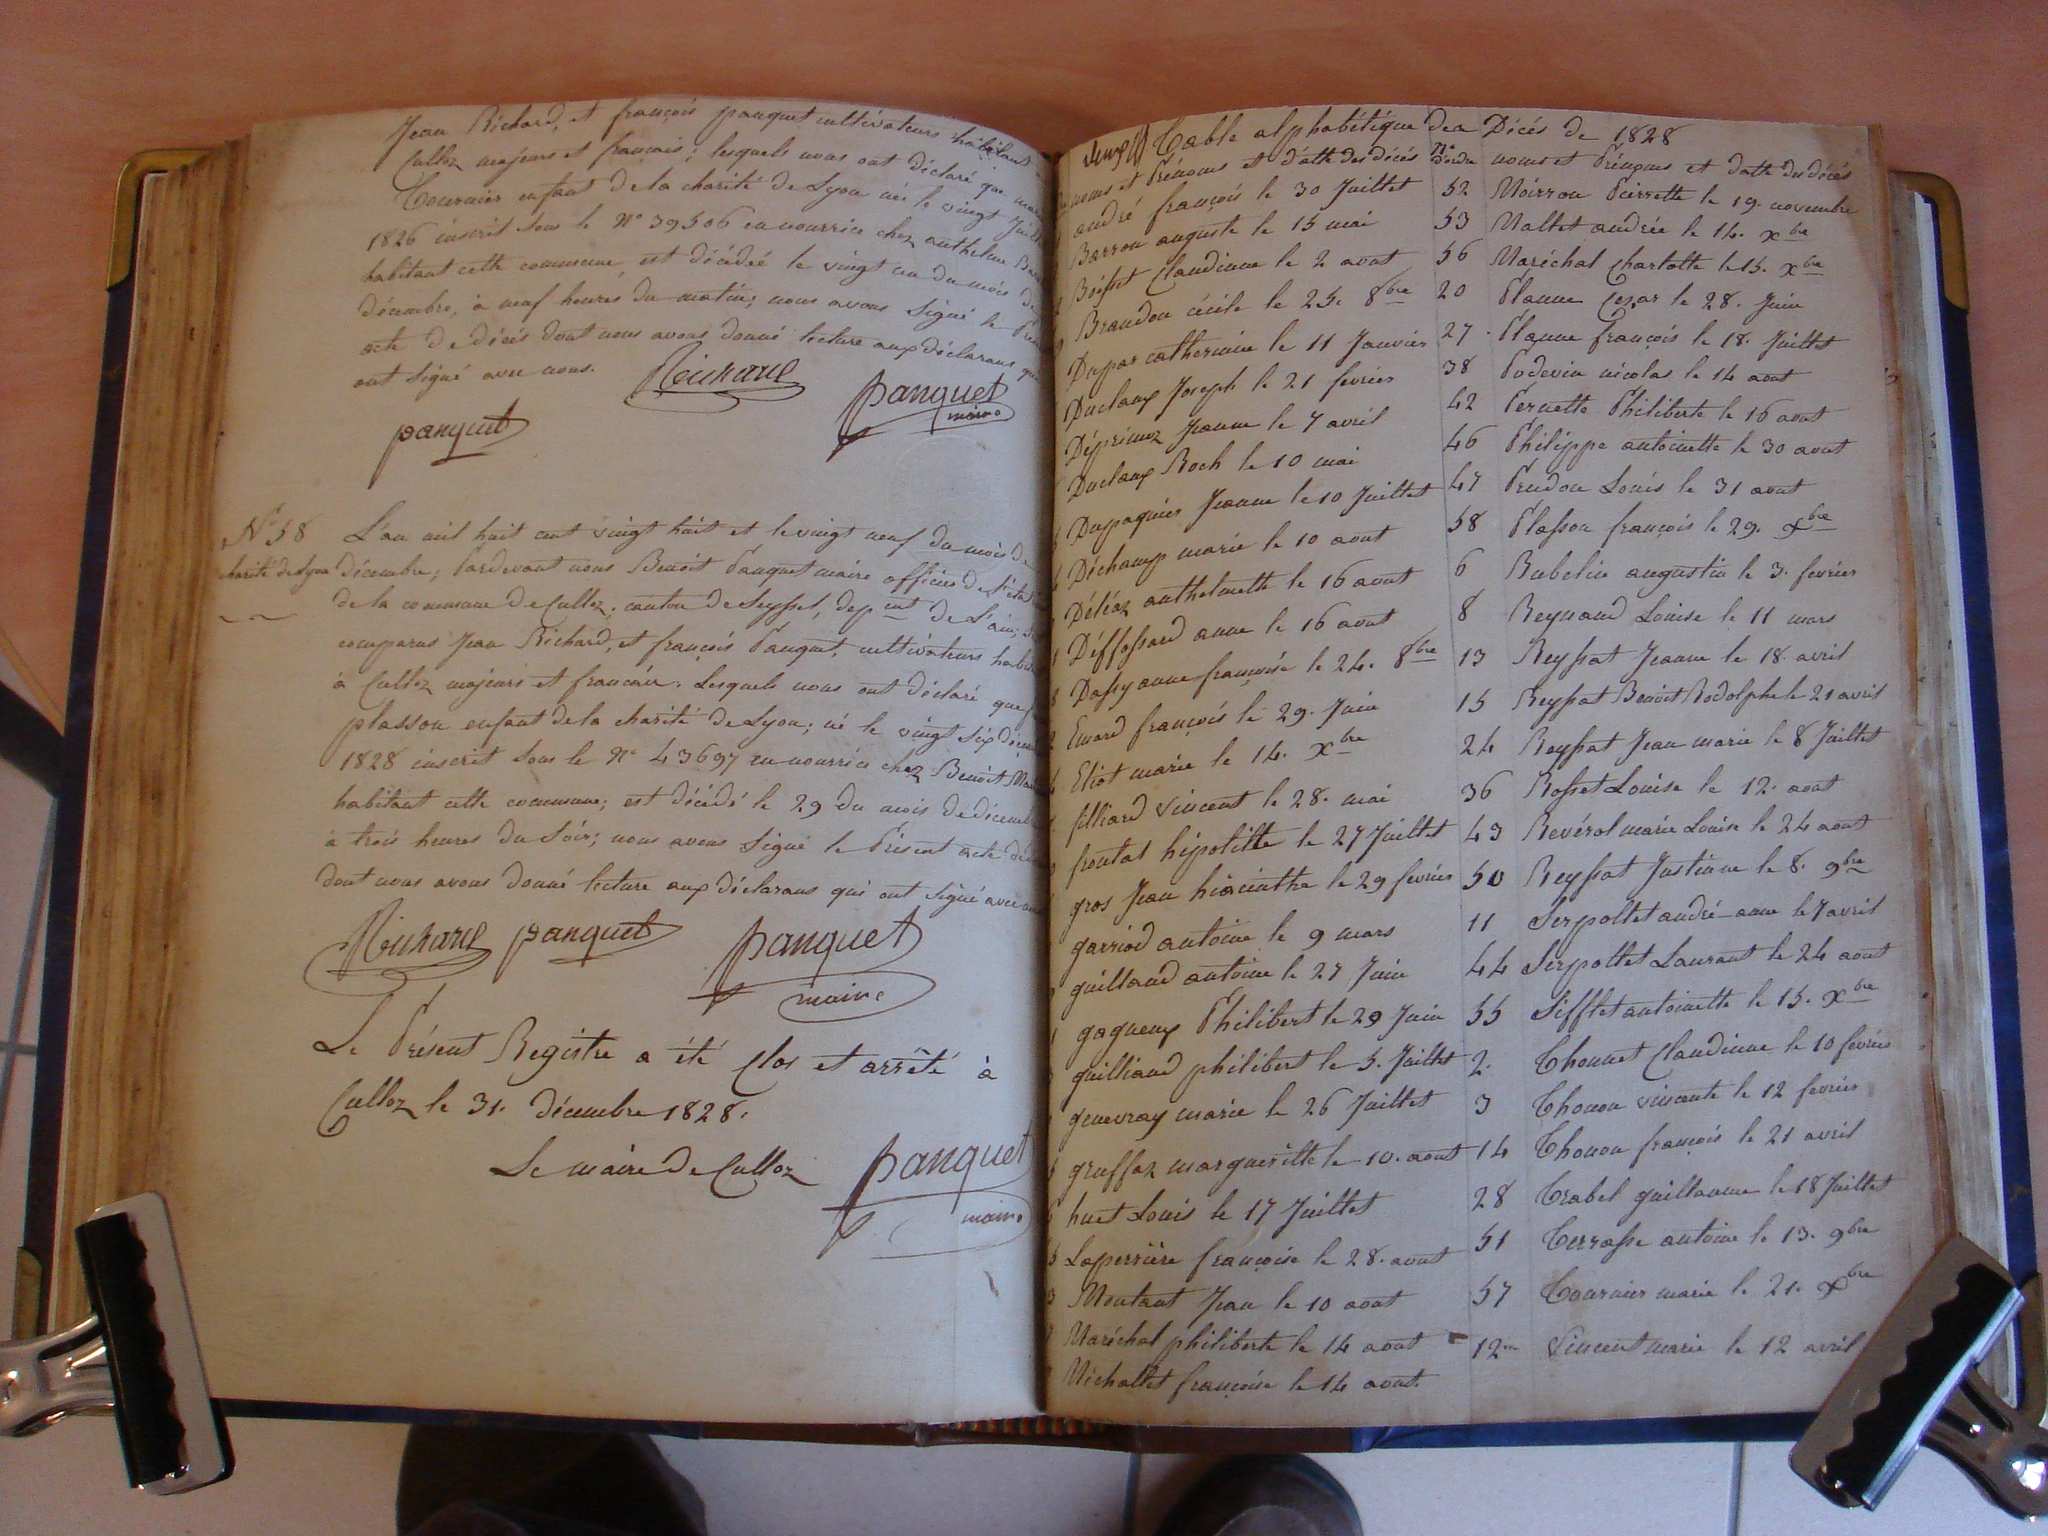 Jean Richard, et françois panquet cultivateurs habitant
Culloz majeurs et français; lesquels nous ont déclaré que marie
Tournier enfant de la charité de Lyon née le vingt Juill
1826 inscrit sous le N° 39506 en nourrice chez anthelme
habitant cette commune est décédée le vingt un du mois de
décembre, à neuf heures du matin; nous avons signé le Prés
acte de décès dont nous avons donné lecture aux déclarans qui
ont signé avec nous.
Richard
panquet
maire
panquet
N° 58
charité de Lyon
L'an mil huit cent vingt huit et le vingt neuf du mois de
décembre; Pardevant nous Benoit Panquet maire officier de l'état
de la commune de Culloz, canton de Seyssel, depmt de L'ain;
comparus Jean Richard, et françois Panquet, cultivateurs habi
à Culloz majeurs et français. Lesquels nous ont déclaré que f
plasson enfant de la charité de Lyon; né le vingt six décem
1828 inscrit sous le N° 43697 en nourrice chez Benoit
habitant cette commune; est décédé le 29 du mois de décemb
à trois heures du soir; nous avons signé le Présent acte de
dont nous avons donné lecture aux déclarans qui ont signé avec nous
Richard panquet panquet
maire
Le Présent Registre a été clos et arrêté à
Culloz le 31. décembre 1828.
Le maire de Culloz panquet
maire
Table alphabétique des Décés de 1828
noms et Prénoms et datte des décés
andré françois le 30 Juillet
Barron auguste le 15 mai
Boisset Claudinne le 2 aout
Brandon cécile le 25. 8bre
Dupar catherinne le 11 Janvier
Duclaux Joseph le 21 fevrier
Déprimoz Jeanne le 7 avril
Duclaux Roch le 10 mai
Dupaquier Jeanne le 10 Juillet
Déchamp marie le 10 aout
Déléaz anthelmette le 16 aout
Déffossard anne le 16 aout
Dassy anne françoise le 24. 8bre
Emard françois le 29. Juin
Eliot marie le 14. Xbre
filliard vincent le 28. mai
frontal hipolitte le 27 Juillet
gros Jean hiacinthe le 29 fevrier
garriod antoine le 9 mars
guilland antoine le 27 Juin
gagneux Philibert le 29 Juin
guilliand philibert le 5. Juillet
genevray marie le 26 Juillet
gruffaz margueritte le 10. aout
huet Louis le 17 Juillet
Laperrière françoise le 28. aout
Montant Jean le 10 aout
Maréchal philiberte le 14 aout
Michallet françoise le 14 aout.
Nos d'ordre noms et Prénoms et datte des décés
52 Moirron Pierrette le 19. novembre
53 Mallet andrée le 14. Xbre
56 Maréchal charlotte le 15. Xbre
20 Planne Cezar le 28. Juin
27 Planne françois le 18. Juillet
38 Podevin nicolas le 14 aout
42 Pernette Philiberte le 16 aout
46 Philippe antoinette le 30 aout
47 Prudon Louis le 31 aout
58 Plasson françois le 29. Xbre
6 Rubelin augustin le 3. fevrier
8 Reynaud Louise le 11 mars
13 Reyssat Jeanne le 18. avril
15 Reyssat Benoit Rodolphe le 21 avril
24 Reyssat Jean marie le 8 Juillet
36 Rosset Louise le 12. aout
43 Revérol marie Louise le 24 aout
50 Reyssat Justinne le 8. 9bre
11 Serpollet andré-anne le 7 avril
44 Serpollet Laurant le 24 aout
55 Sifflet antoinette le 15. Xbre
2. Thonnet Claudinne le 10 fevrier
3 Thonon vincente le 12 fevrier
14 Thonon françois le 21 avril
28 Trabel guillaume le 18 Juillet
51 Terrasse antoine le 13. 9bre
57 Tournier marie le 21. Xbre
12 Vincent marie le 12 avril